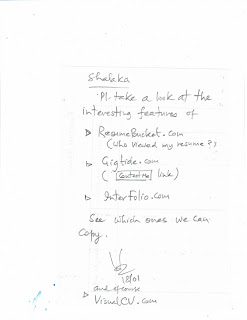 Shalaka
Pl. take a look at the
interesting features of
▷ ResumeBucket.com
(Who viewed my resume?)
▷ Gigtide.com
( Contact Me link)
▷ Interfolio.com
See which ones we can
copy.
18/01
and of course
▷ VisualCV.com